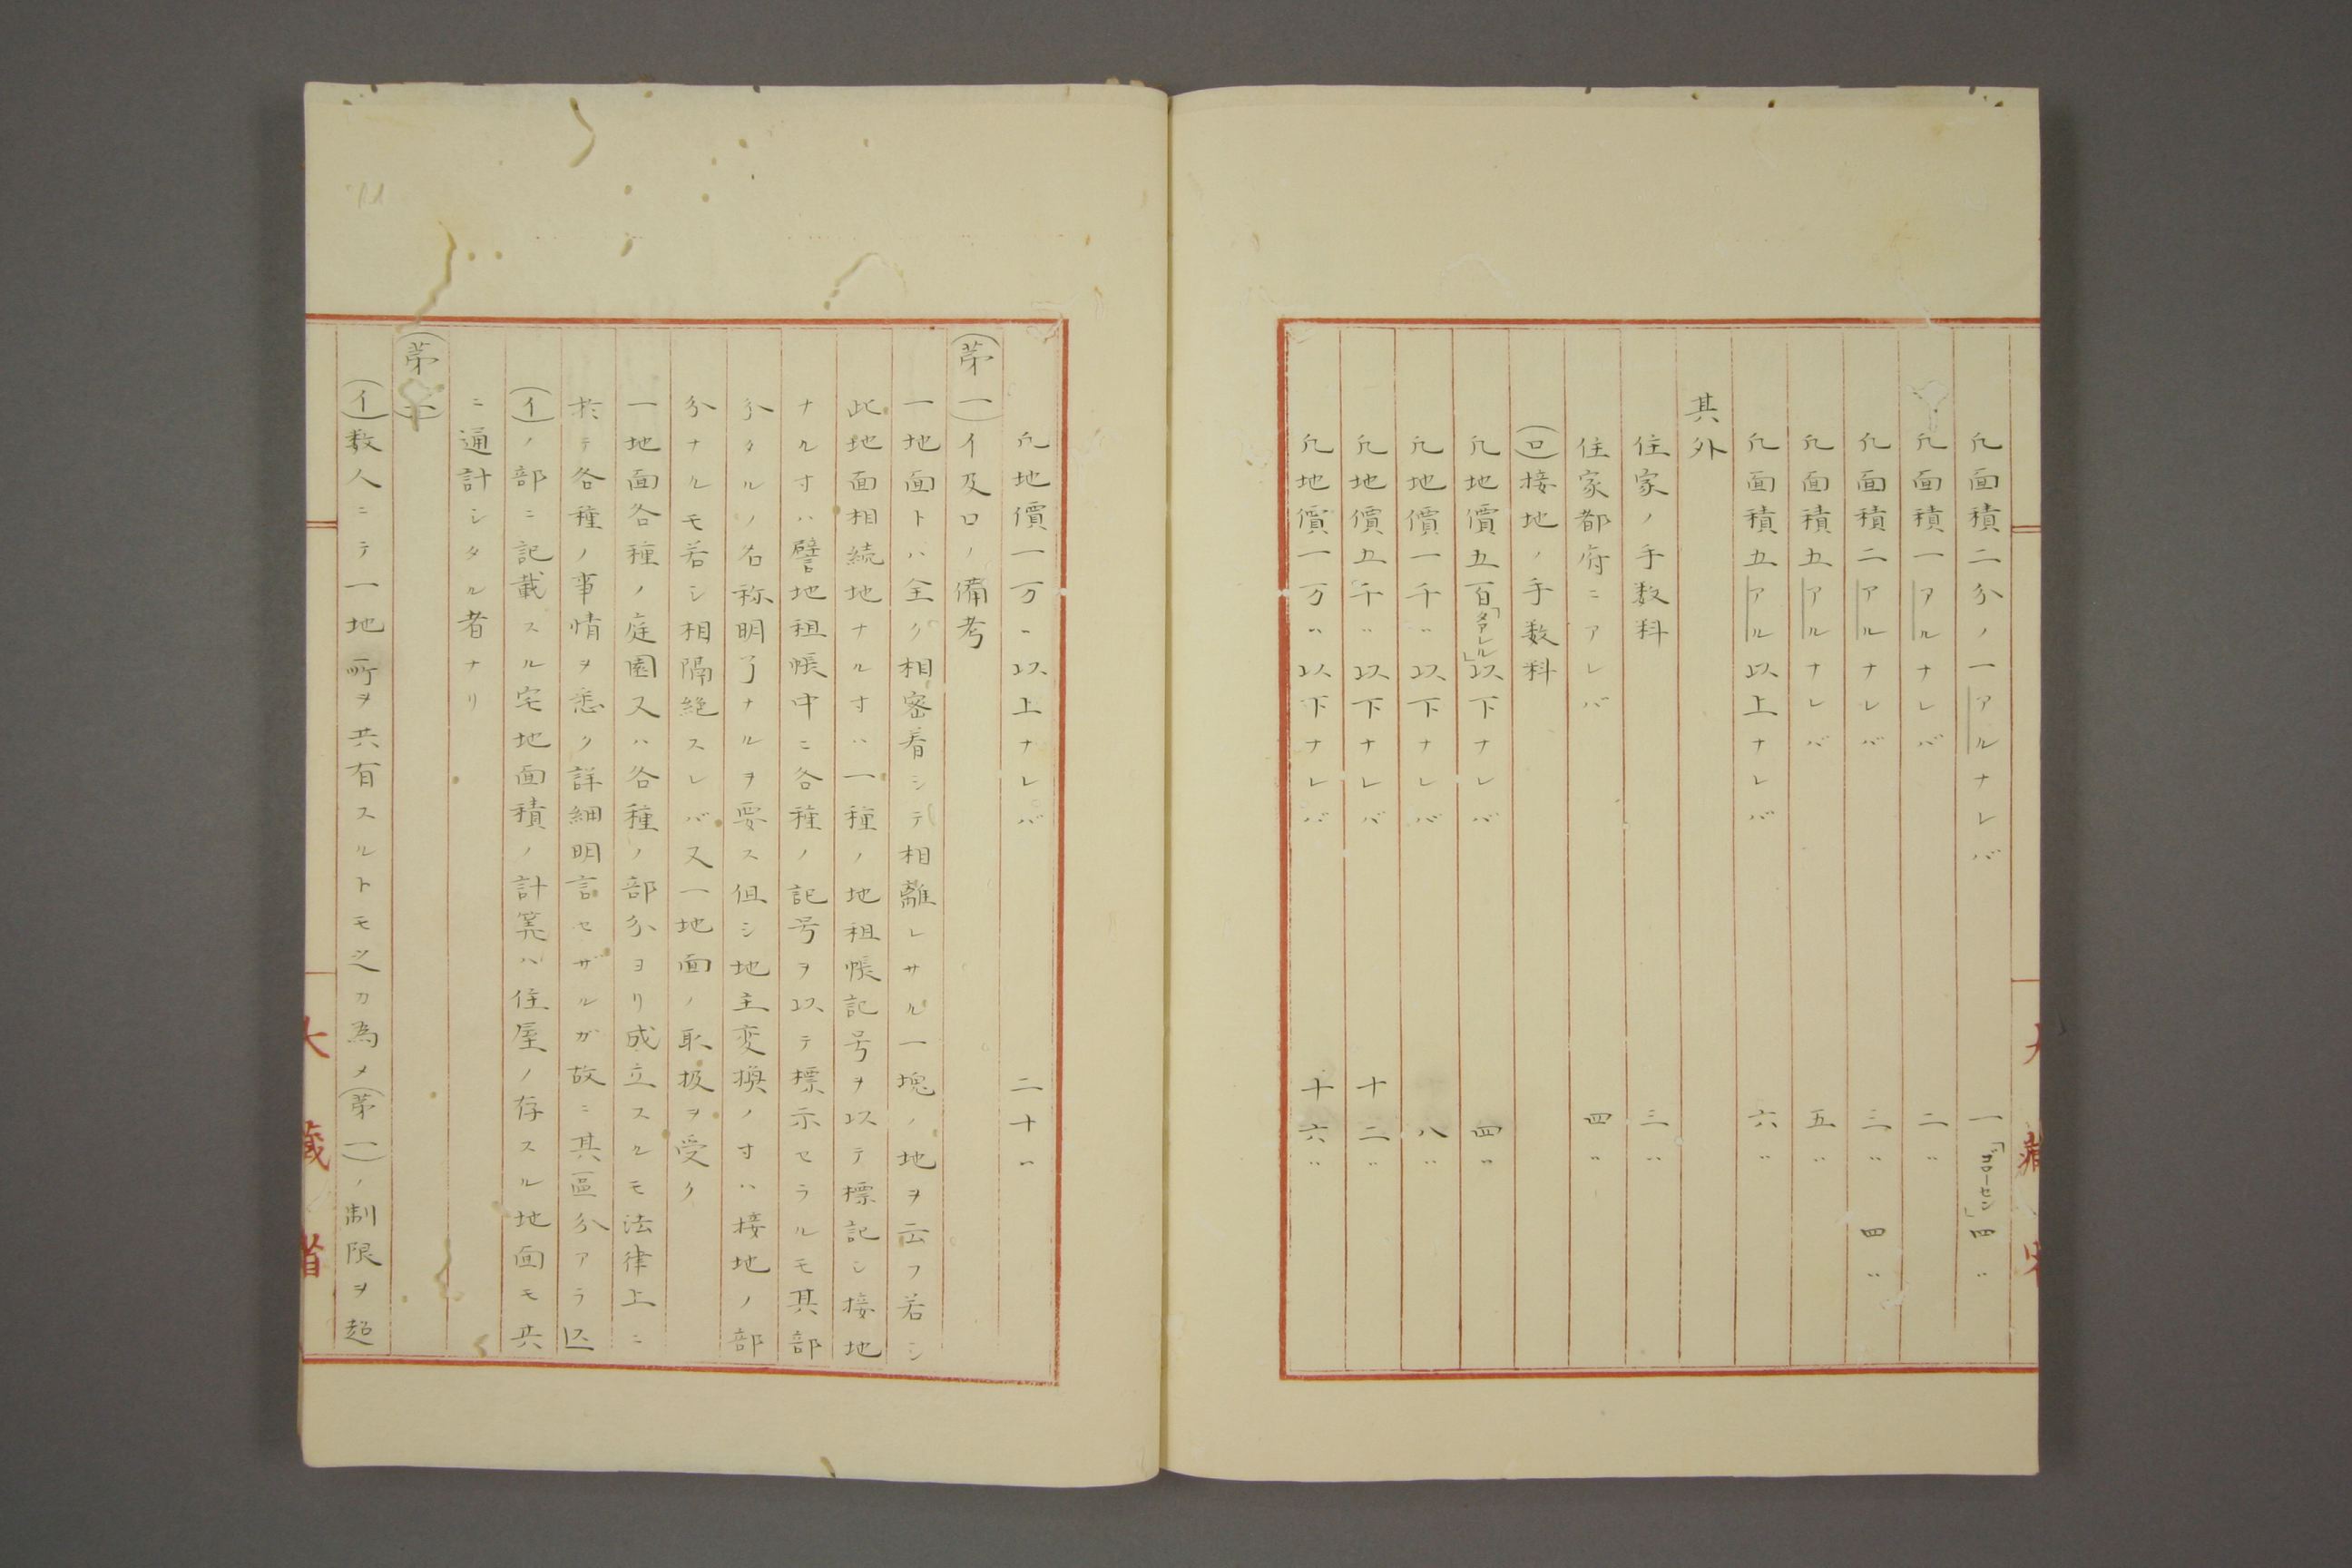 凢面積二分ノ一アルナレバ 一「ゴローセン」四〃
凢面積一アルナレバ 二〃
凢面積二アルナレバ 三〃四〃
凢面積五アルナレバ 五〃
凢面積五アル以上ナレバ 六〃
其外
住家ノ手数料 三〃
住家都府ニアレバ 四〃
(ロ)接地ノ手数料
凢地價五百「タアレル」以下ナレバ 四〃
凢地價一千〃以下ナレバ 八〃
凢地價五千〃以下ナレバ 十二〃
凢地價一万〃以下ナレバ 十六〃
凢地價一万〃以上ナレバ 二十〃
(第一)イ及ロノ備考
一地面トハ全ク相密着シテ相離レサル一塊ノ地ヲ云フ若シ
此地面相続地ナルオハ一種ノ地租帳記号ヲ以テ標記シ接地
ナルオハ譬地租帳中ニ各種ノ記号ヲ以テ標示セラルモ其部
分タルノ名称明了ナルヲ要ス但シ地主変換ノオハ接地ノ部
分ナルモ若シ相隔絶スレバ又一地面ノ取扱ヲ受ク
一地面各種ノ庭園又ハ各種ノ部分ヨリ成立スルモ法律上ニ
於テ各種ノ事情ヲ悉ク詳細明言セザルガ故ニ其區分アラ𪜈
(イ)ノ部ニ記載スル宅地面積ノ計筭ハ住屋ノ存スル地面モ共
ニ通計シタル者ナリ
(第二)
(イ)数人ニテ一地所ヲ共有スルトモ之カ為メ(第一)ノ制限ヲ超
大藏省